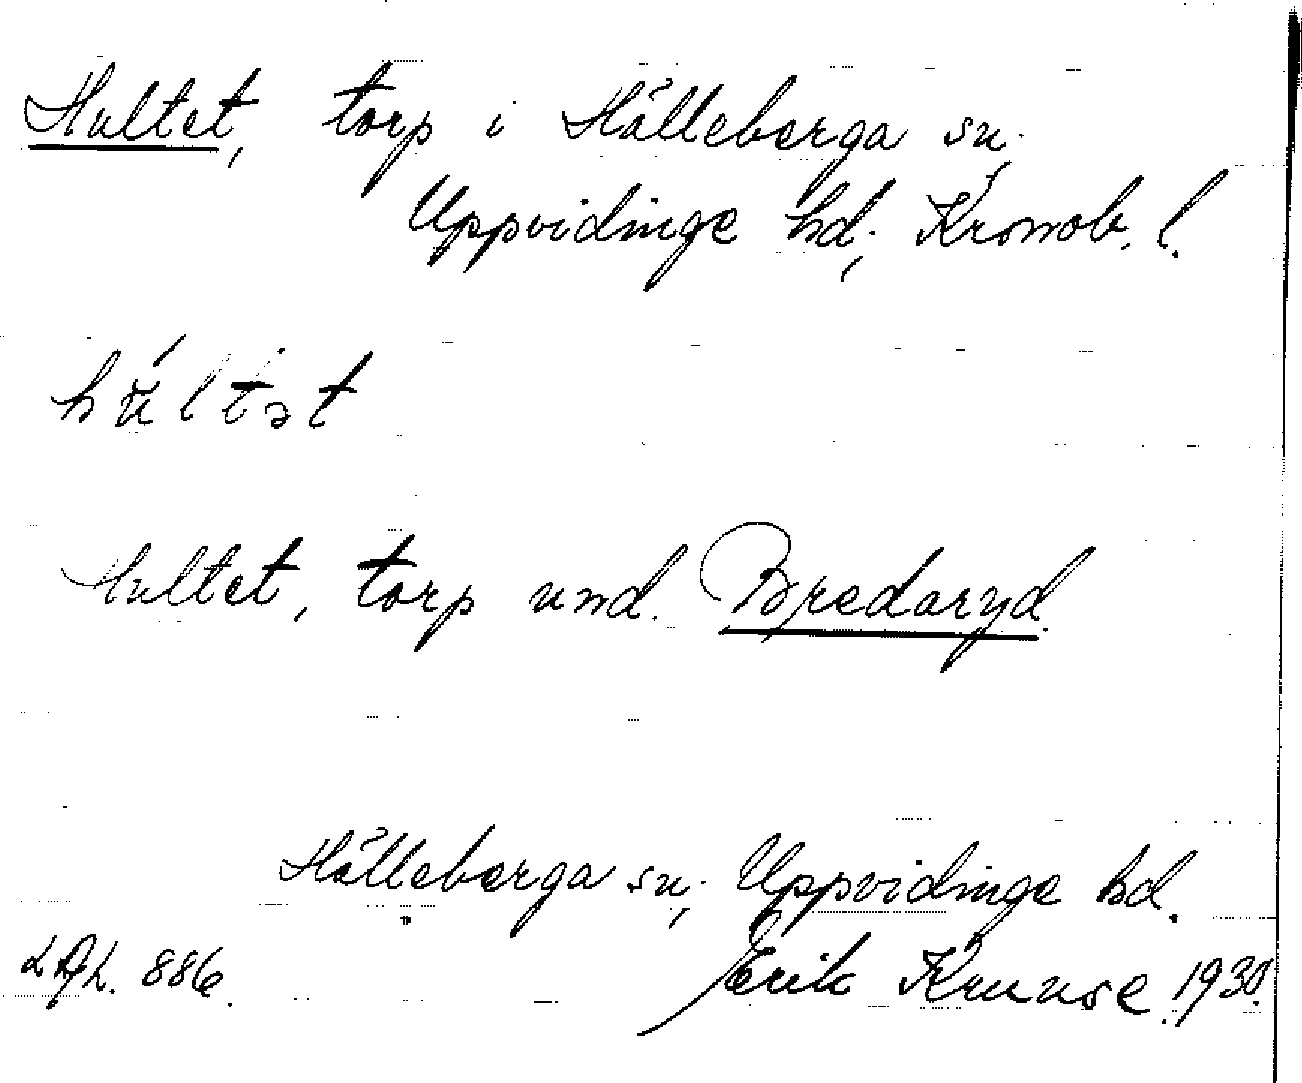 Hultet, torp i Hälleberga sn;
Uppvidinge hd; Kronob. l.
húltət
Hultet, torp und. Bredaryd.
Hälleberga sn; Uppvidinge hd.
886. Erik Kruuse. 1930.